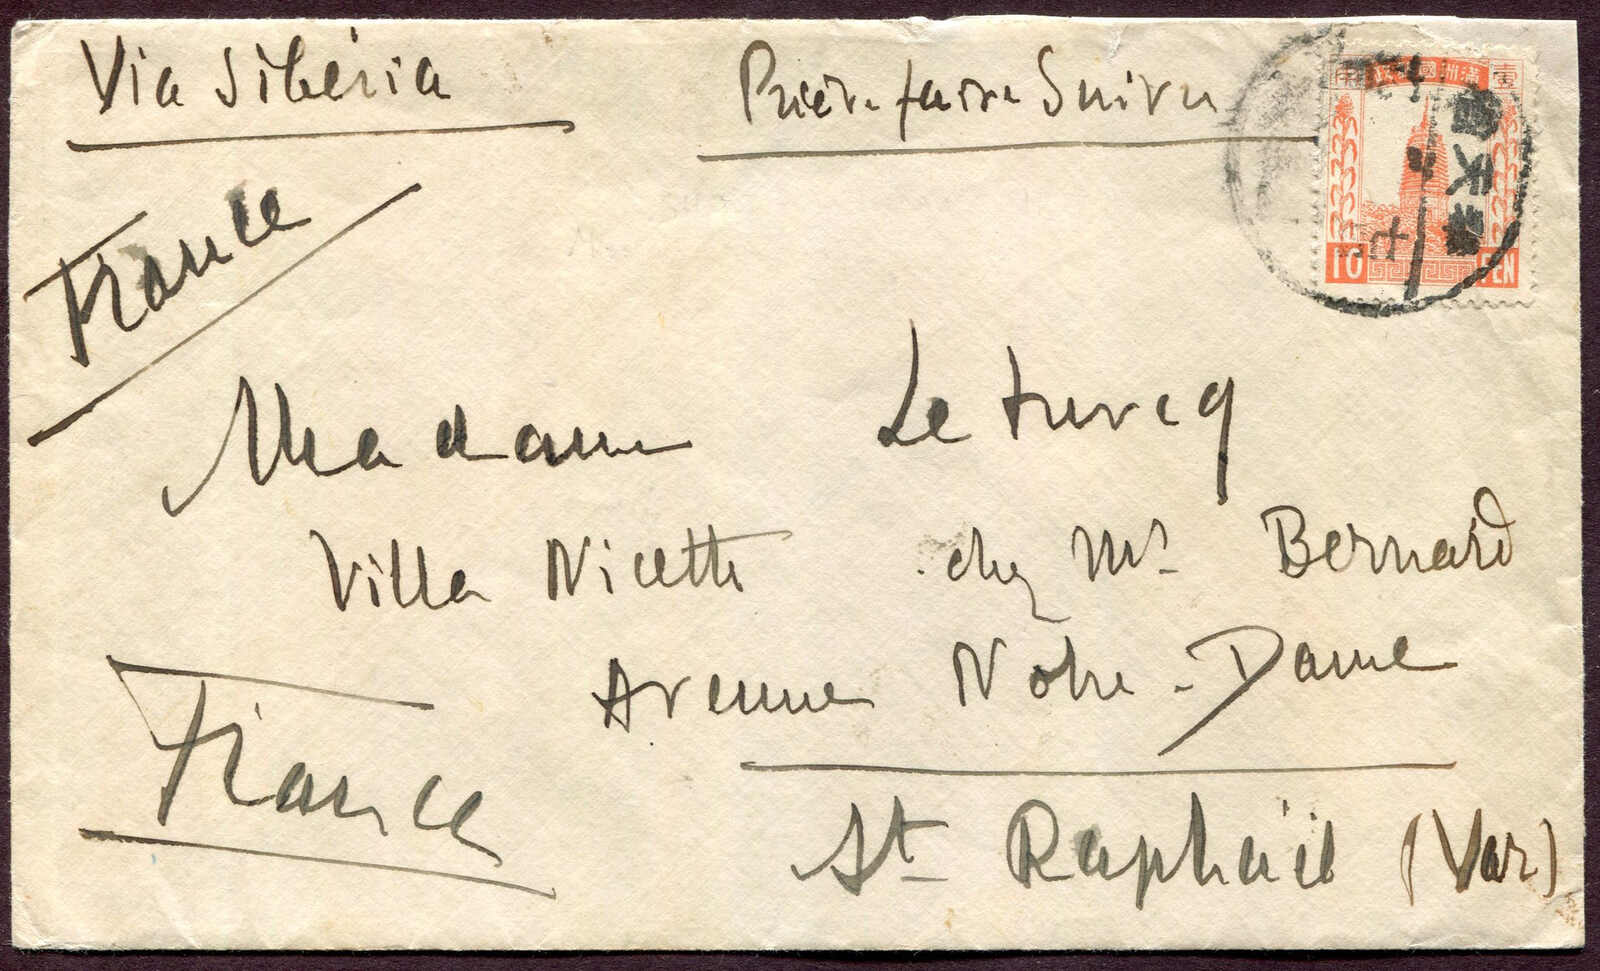 Via Siberia
Prière faire Suivre
France
Madame Leturcq
Villa Nicette chez Mr Bernard
Avenue Notre-Dame
St Raphaël (Var)
France
壹 滿洲國 政
10 FEN
奉天